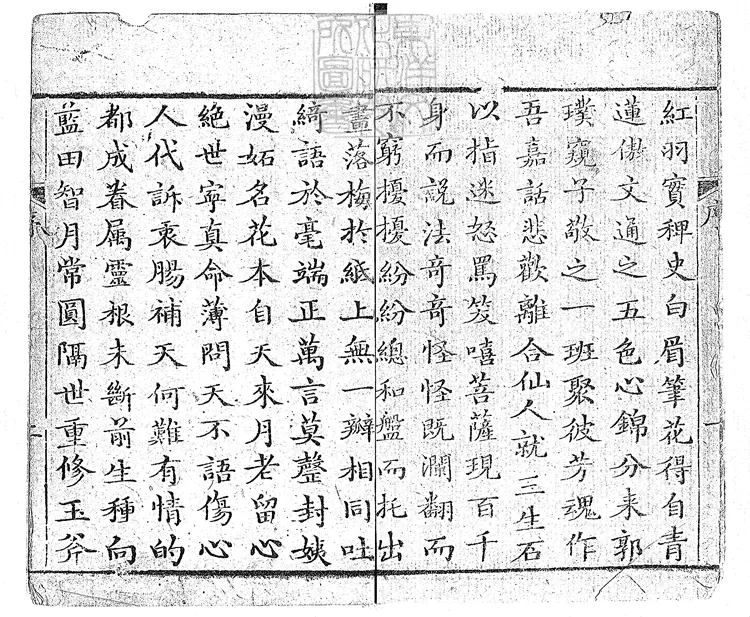 紅羽寳稗史白眉筆花得自青
蓮倣文通之五色心錦分来郭
璞窺子敬之一班聚彼芳魂作
吾嘉話悲歡離合仙人就三生石
以指迷怒罵笑嘻菩薩現百千
身而説法奇奇怪怪既瀾翻而
不窮擾擾紛紛總和盤而托出
畫落梅於紙上無一瓣相同吐
綺語於毫端正萬言莫罄封姨
漫妬名花本自天來月老留心
絶世寧真命薄問天不語傷心
人代訴衷腸補天何難有情的
都成眷属靈根未斷前生種向
藍田智月常圓隔世重修玉斧
序
一
序
一